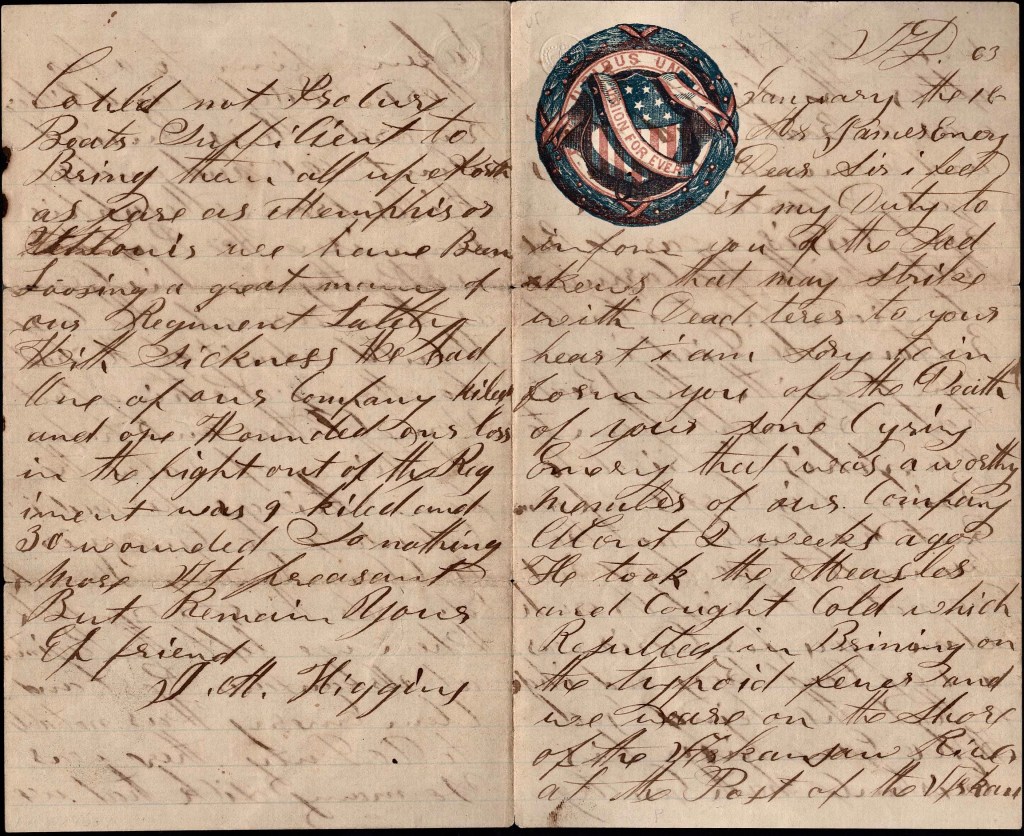 PLURIBUS UNUM
UNION FOR EVER
AD. 63
January the 16
Mr James Emery
Dear Sir i feel
it my Duty to
inform you of the Sad
news that may strike
with Dead teres to your
heart i am Sory to in
form you of the Death
of your sone Cyring
Emery that was a worthy
member of our Company
About 2 weeks ago
He took the Measles
and Cought Cold which
Resulted in Brining on
the typhoid fever and
we ware on the Shore
of the Arkansaw River
at the Post of the Arkan
Could not Procure
Boats Sufficient to
Bring them all up North
as fare as Memphis or
St Louis we have Been
Loosing a great many of
our Regiment Lattly
With Sickness We had
One of our Company kiled
and one Wounded our loss
in the fight out of the Reg
iment was 9 kiled and
30 wounded So nothing
more At preasant
But Remain Yours
friend
Higgins